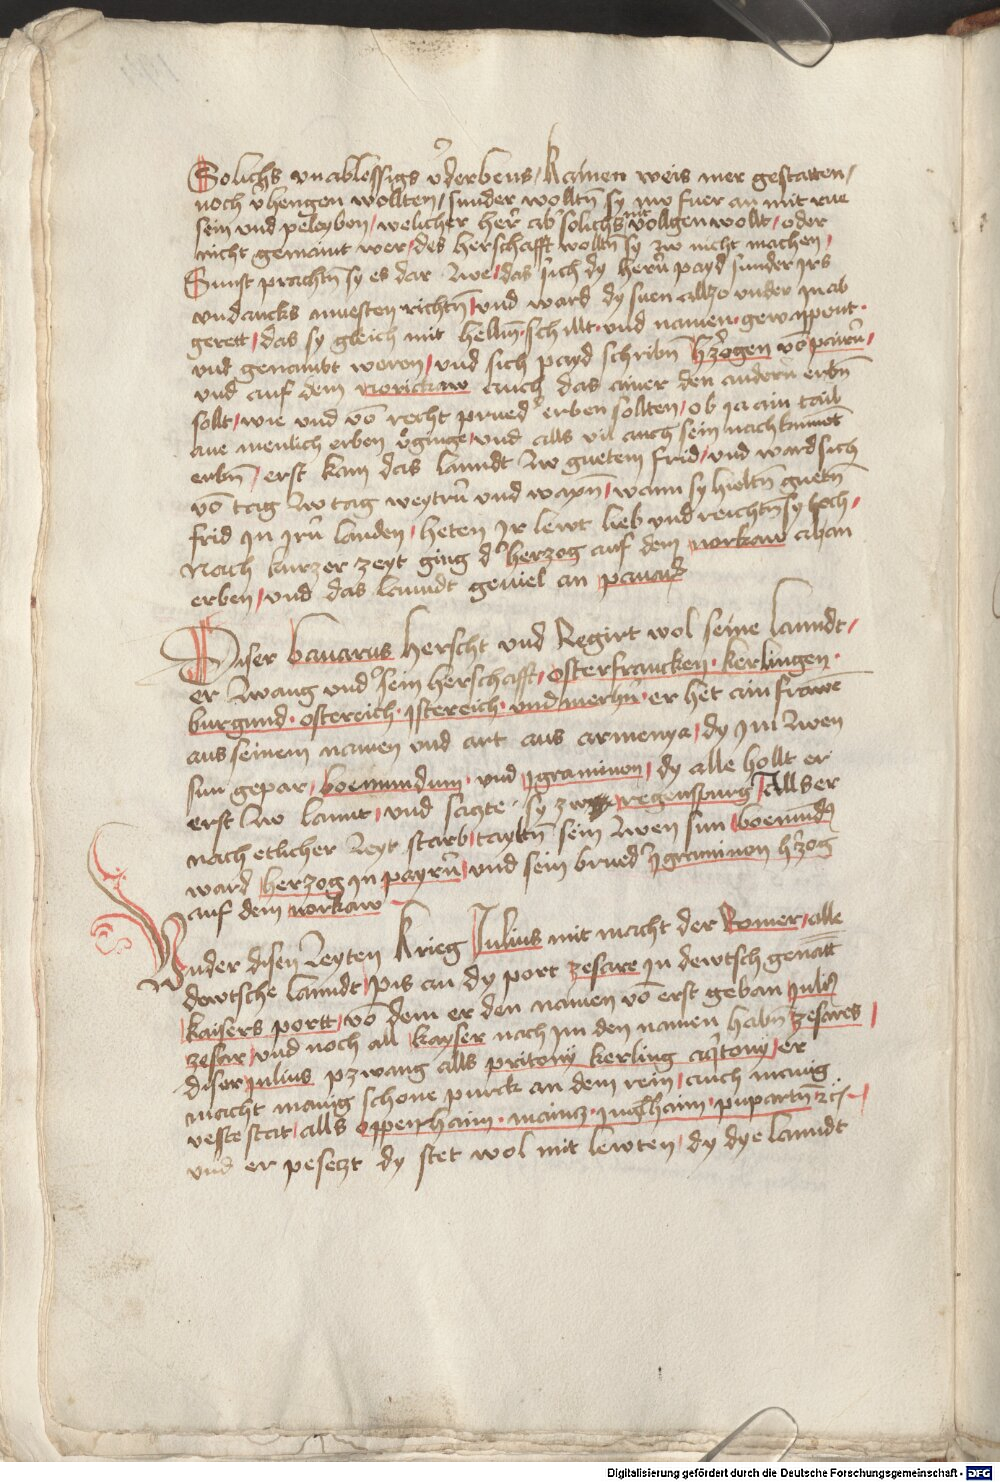 Solichs vnablessigs v̉derbens / kainen weis mer gestatten /
noch v̉hengen wollten / sunder wolltn̄ sy nw fuer an mit rue
sein vnd peleyben / welicher her̄ ab solichs nit vollgen wollt / oder
nicht gemaint wer / des herschafft wolltn̄ sy zw nicht machen /
Sunst prachtn̄ sy es dar zwe / das sich dy her̄n payd sunder irs
vndancks muesten richtn̄ / vnd ward dy suen allzo vnder in ab
gerett / das sy gleich mit hellm̄ · schillt · vnd namen · gewappent ·
vnd genannt waren / vnd sich payd schribn̄ hʒ̉ogen vō pairn̄ /
vnd auf dem norickaw auch das ainer den andern erbn̄
sollt / wie vnd vō recht prued̉ erben sollten / ob ir ain tail
ane menlich erben v̉ginge / vnd alls vil auch sein nachkumēt
erbn̄ / erst kam das lanndt zw guetem frid / vnd ward sich
vō tag zw tag weytrn̄ vnd waxn̄ / wann sy hieltn̄ guetn̄
frid in irn̄ landen / heten ir lewt lieb vnd reichtn̄ sy hoch /
Nach kurzer zeyt ging d̉ herzog auf dem norkaw ab an
erben / vnd das lanndt geuiel an pauar̄
Diser bauarus herscht vnd Regirt wol seine lanndt /
er zwang vnd̉ sein herschafft / osterfrancken · kerlingen ·
burgund · ostereich · istereich · vnd merhn̄ · er het ain frawē
aus seinem namen vnd art aus armenya / dy im zwen
sun gepar / boemundum · vnd igraminon / dy alle hollt er
erst zw lannt / vnd sagte sy zw regenspurg / Alls er
nach etlicher zeyt starb / tayltn̄ sein zwen sun / boemūd̉
ward herzog in payrn̄ / vnd sein brued̉ igraminon hʒ̉og
auf dem norkaw
Vnder disen zeyten krieg Julius mit macht der Romer / alle
dewtsche lanndt / pis an dy port zesare in dewtsch genātt
kaisers portt / vō dem er den namen vō erst geban julius
zesar / vnd noch all kayser nach im den namen habn̄ zesares /
diser julius pzwang alls pritony kerling aq̄tony / er
macht manig schone purck an dem rein / auch manig
veste stat / alls oppenhaim · maincz · inglhaim · pupartn̄ ꝛc̄ /
vnd er peseczt dy stet wol mit lewten / dy dye lanndt
Digitalisierung gefördert durch die Deutsche Forschungsgemeinschaft - DFG